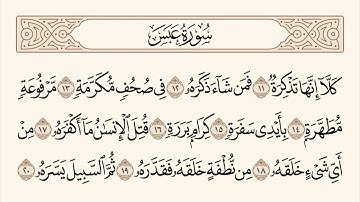 سُورَةُ عَبَسَ
كَلَّآ إِنَّهَا تَذْكِرَةٌ ١١ فَمَن شَآءَ ذَكَرَهُۥ ١٢ فِى صُحُفٍ مُّكَرَّمَةٍ ١٣ مَّرْفُوعَةٍ
مُّطَهَّرَةٍۭ ١٤ بِأَيْدِى سَفَرَةٍ ١٥ كِرَامٍۭ بَرَرَةٍ ١٦ قُتِلَ ٱلْإِنسَٰنُ مَآ أَكْفَرَهُۥ ١٧ مِنْ
أَىِّ شَىْءٍ خَلَقَهُۥ ١٨ مِن نُّطْفَةٍ خَلَقَهُۥ فَقَدَّرَهُۥ ١٩ ثُمَّ ٱلسَّبِيلَ يَسَّرَهُۥ ٢٠